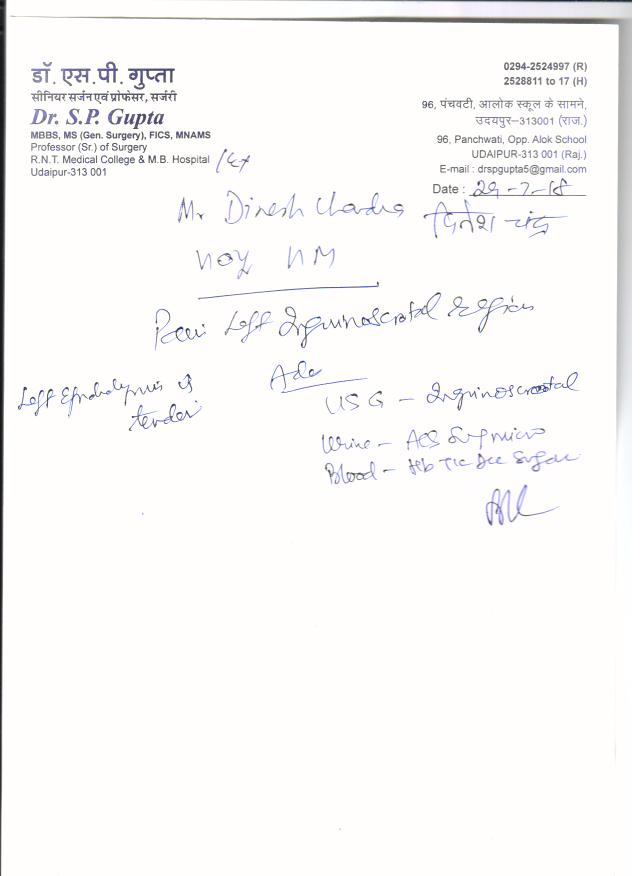 डॉ. एस.पी. गुप्ता
सीनियर सर्जन एवं प्रोफेसर, सर्जरी
Dr. S.P. Gupta
MBBS, MS (Gen. Surgery), FICS, MNAMS
Professor (Sr.) of Surgery
R.N.T. Medical College & M.B. Hospital
Udaipur-313 001
0294-2524997 (R)
2528811 to 17 (H)
96, पंचवटी, आलोक स्कूल के सामने,
उदयपुर–313001 (राज.)
96, Panchwati, Opp. Alok School
UDAIPUR-313 001 (Raj.)
E-mail : drspgupta5@gmail.com
Date : 29-7-18
Mr Dinesh Chandra दिनेश चंद्र
Pain Left Inguinoscrotal region
Left Epididymis is
tender
Adv
USG - Inguinoscrotal
Urine - Alb Sug micro
Blood - Hb TLC DLC Sugar